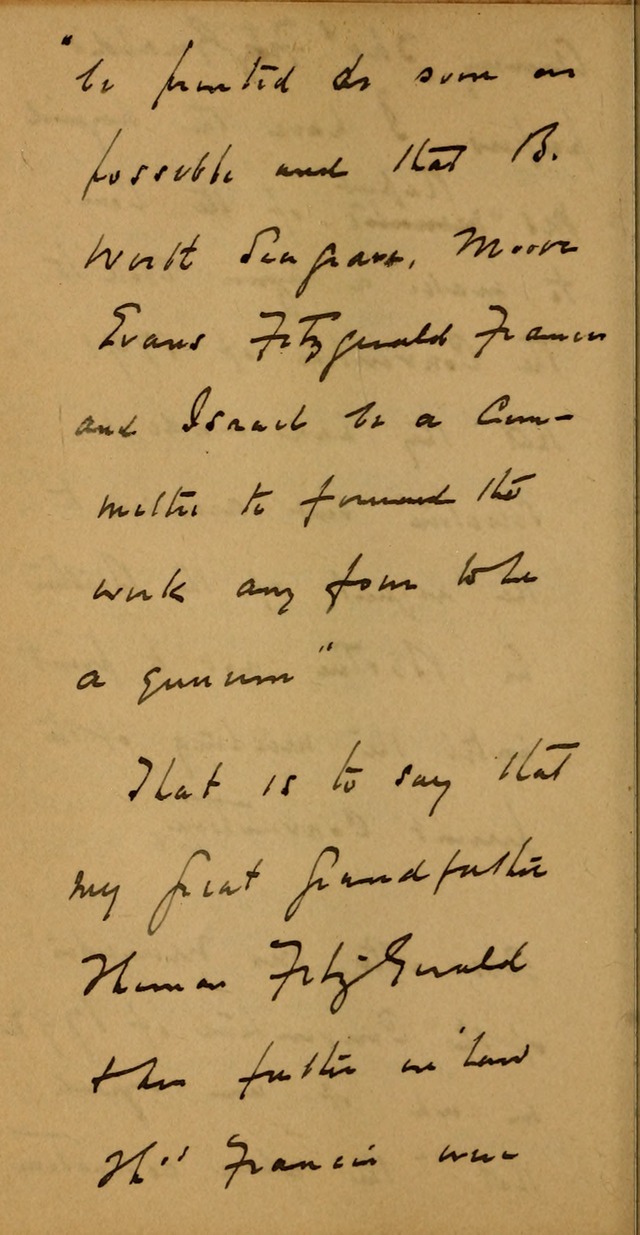 "be printed as soon as
possible and that B.
Wortt Seagrave, Moore
Evans Fitzgerald Francis
and Israel be a Com-
mittee to forward the
work any four to be
a quorum"
That is to say that
my great grandfather
Thomas FitzGerald
& his father in law
Thos Francis were